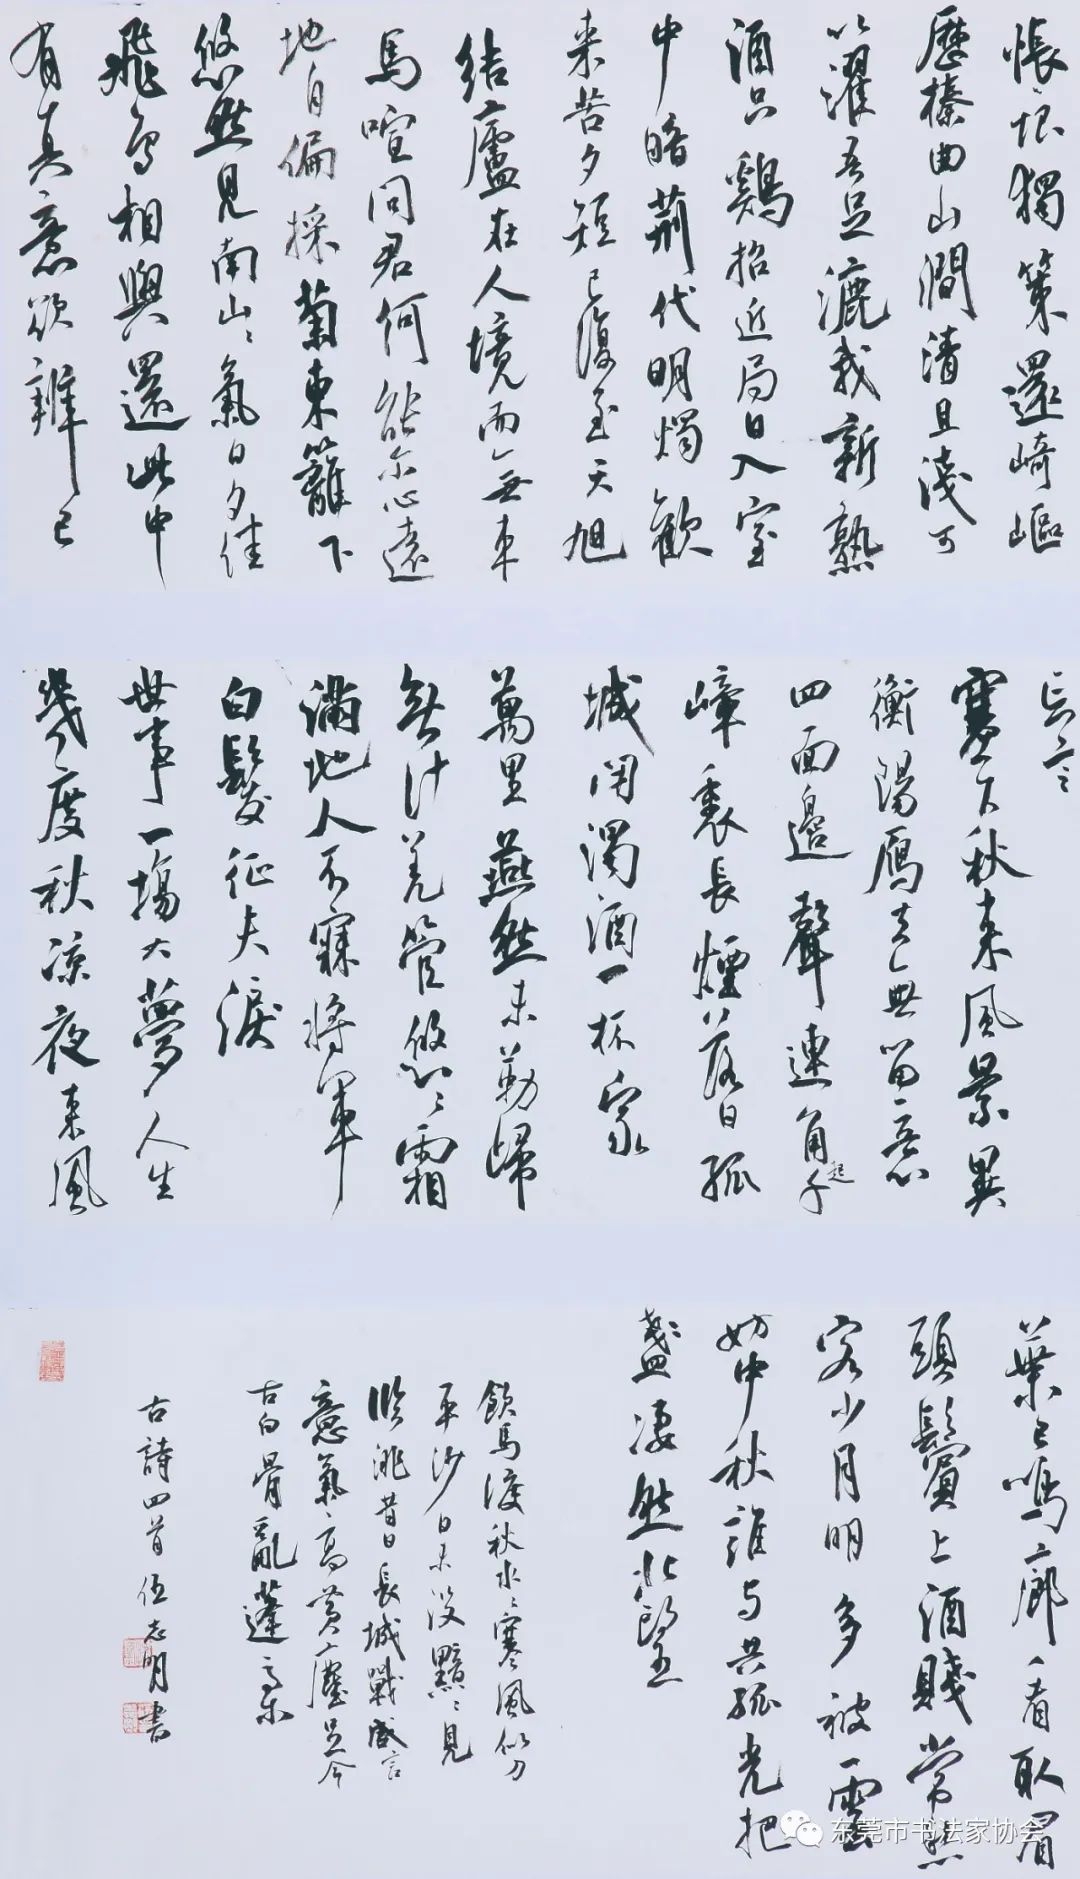 悵恨獨策還崎嶇
歷榛曲山澗清且淺可
以濯吾足漉我新熟
酒只鷄招近局日入室
中暗荊代明燭歡
來苦夕短已復至天旭
結廬在人境而無車
馬喧問君何能尔心遠
地自偏採菊東籬下
悠然見南山山氣日夕佳
飛鳥相與還此中
有真意欲辨已
忘言
塞下秋來風景異
衡陽雁去無留意
四面邊聲連角起千
嶂裏長煙落日孤
城閉濁酒一杯家
萬里燕然未勒歸
無計羌管悠悠霜
滿地人不寐將軍
白髮征夫淚
世事一場大夢人生
幾度秋涼夜來風
葉已鳴廊看取眉
頭鬢上酒賤常愁
客少月明多被雲
妨中秋誰与共孤光把
盞凄然北望
飲馬渡秋水水寒風似刀
平沙日未没黯黯見
臨洮昔日長城戰咸言
意氣高黄塵足今
古白骨亂蓬蒿
古詩四首伍志明書
东莞市书法家协会